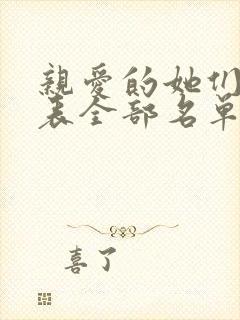 親愛的她们
表全部名单
喜了